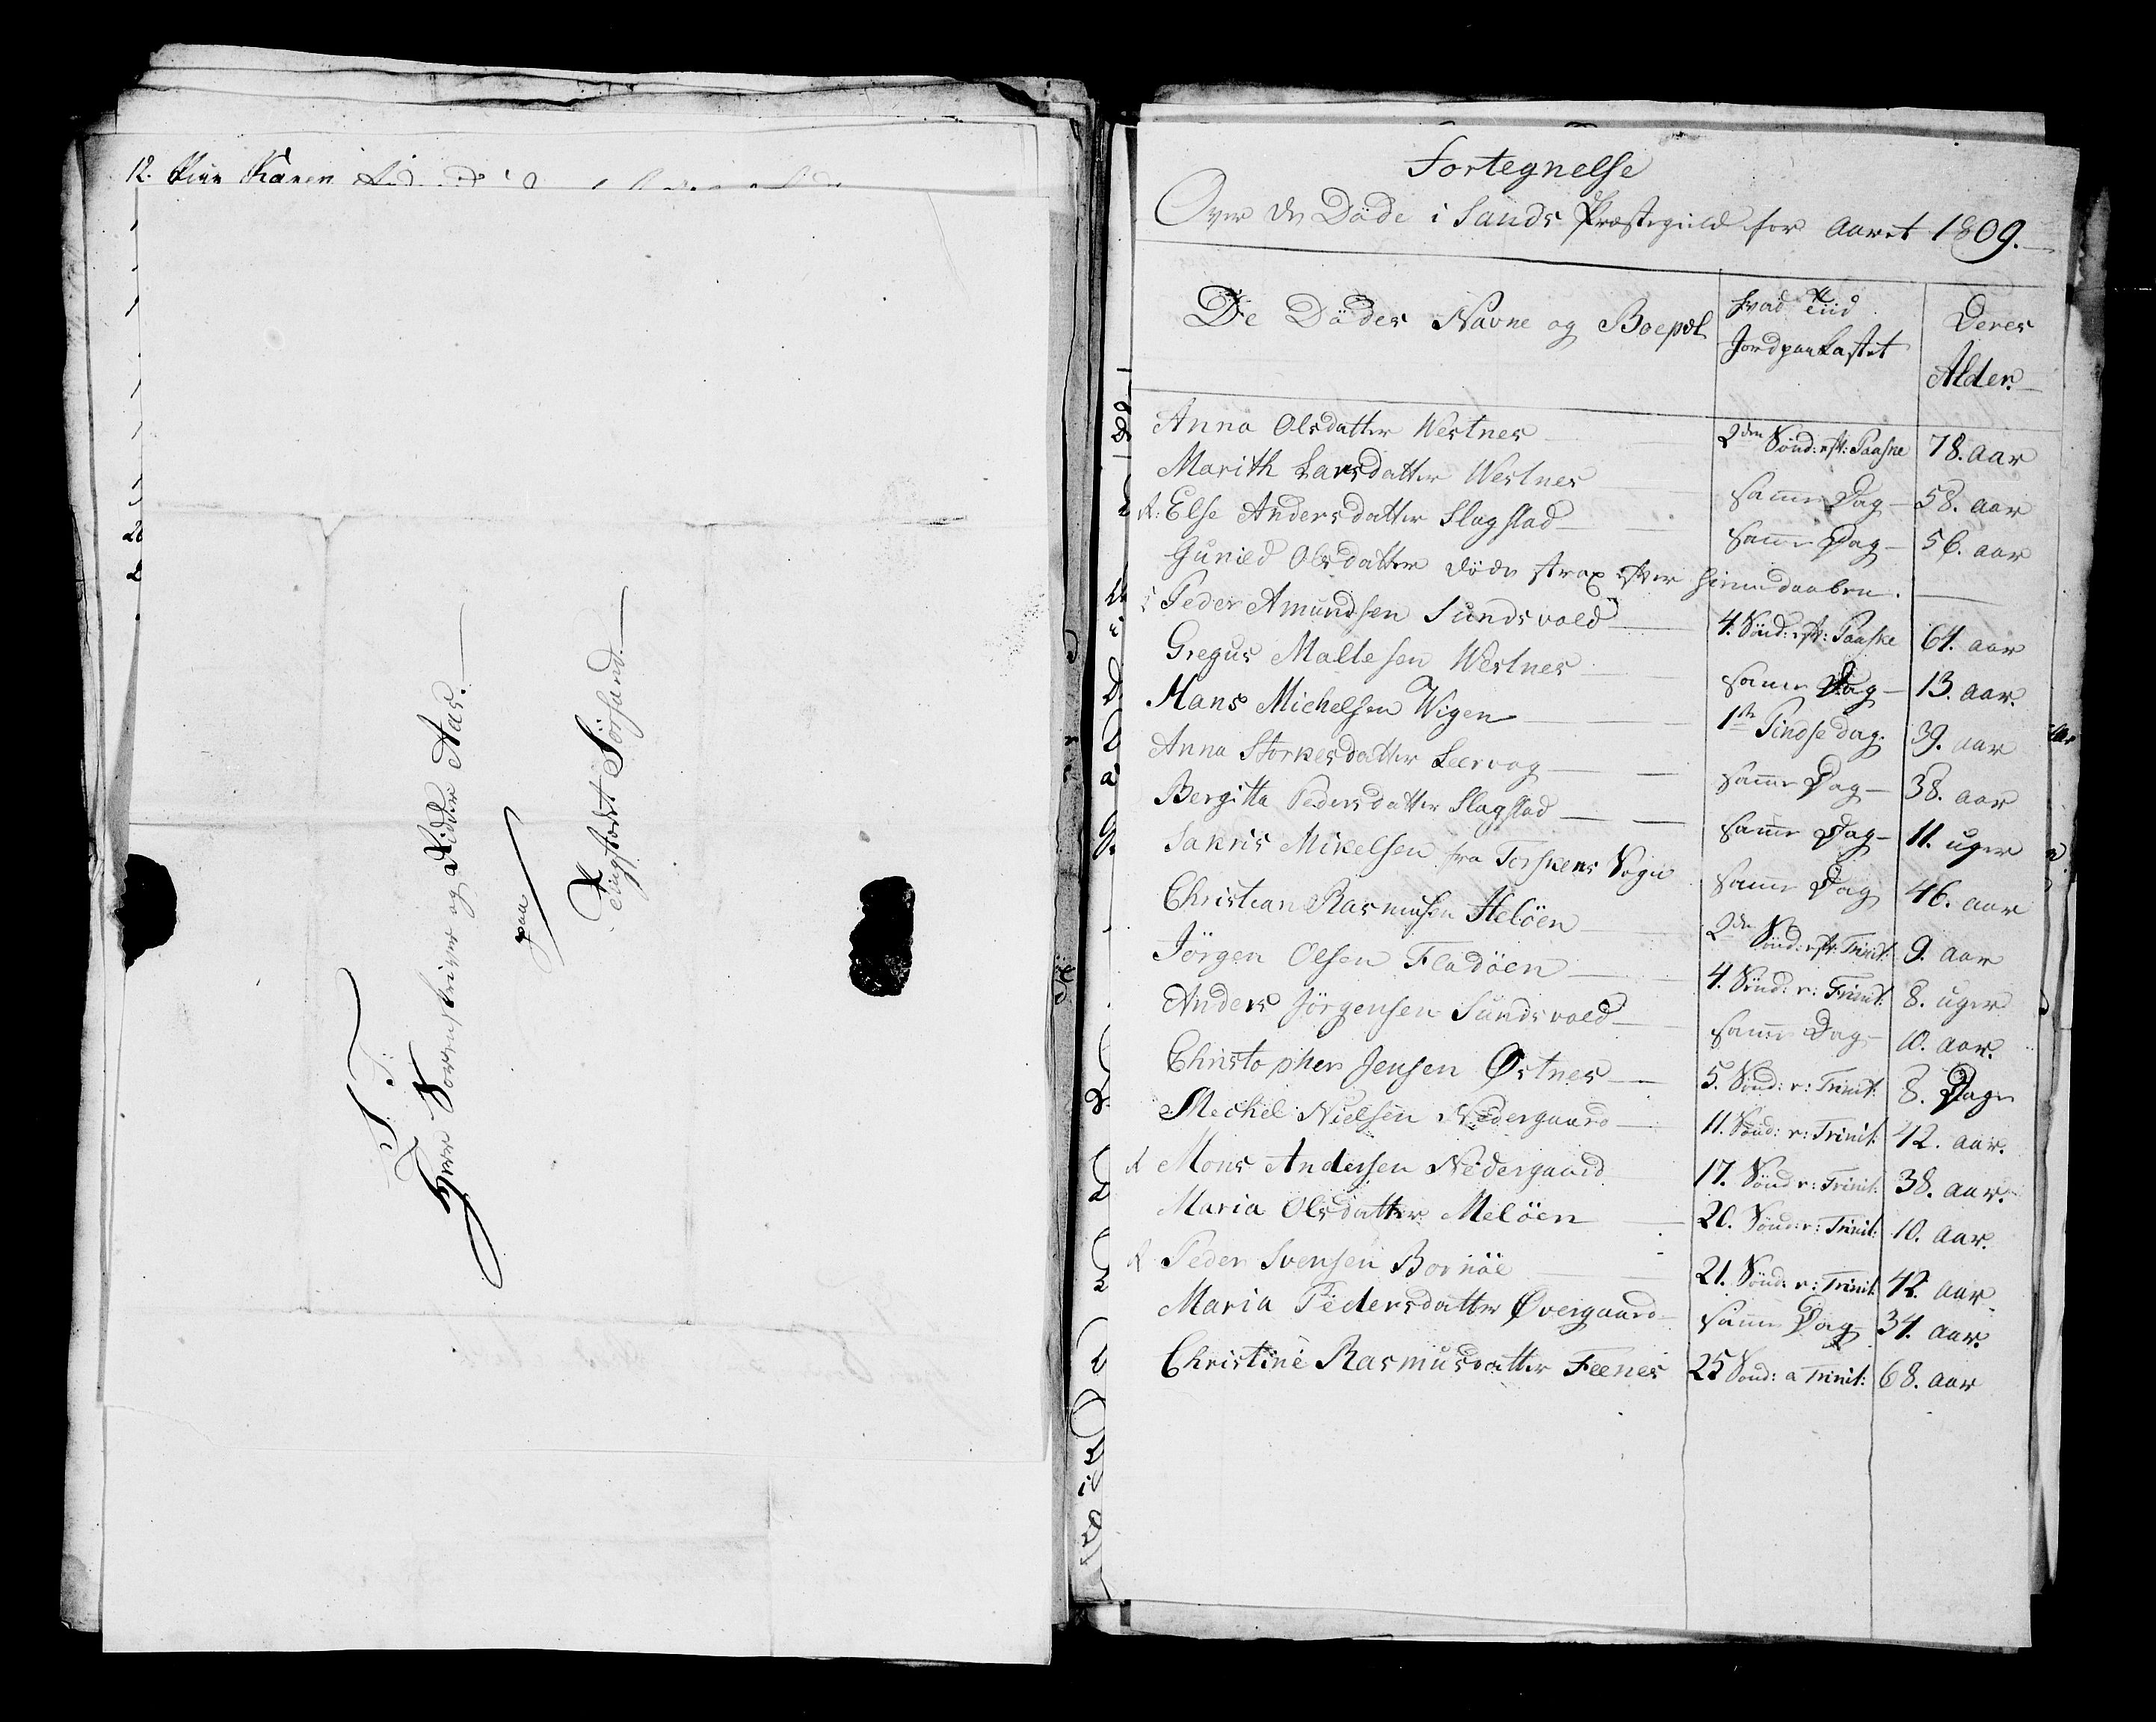 12. Karen
T: T:
Herr Sorenskriver og Ridder Aas.
paa
Tingstedet Sörsand.
Fortegnelse
Over de Döde i Sands Præstegield for Aaret 1809.
De Dödes Navne og Boepæl
hvad Tiid Jordpaakastet
Deres Alder.
Anna Olsdatter Westnes 2den Sönd: eft: Paaske 78. aar
Marith Larsdatter Westnes samme Dag 58. aar
Else Andersdatter Slagstad samme Dag 56. aar
Gunild Olsdatter döde strax efter hiemedaaben.
Peder Amundsen Sundsvold 4. Sönd: eft: Paaske 64. aar
Gregus Maltesen Westnes samme Dag 13. aar.
Hans Michelsen Wigen 1ste Pindsedag. 39. aar
Anna Storkesdatter Leervog samme Dag 38. aar
Bergitta Pedersdatter Slagstad samme Dag 11. uger
Sakris Mikelsen fra Torskens Sogn samme Dag 46. aar
Christian Rasmusen Helöen 2den Sönd: eft: Trinit: 9. aar
Jörgen Olsen Fladöen 4. Sönd: e: Trinit: 8. uger
Anders Jörgensen Sundsvold samme Dag 10. aar.
Christopher Jensen Østnes 5. Sönd: e: Trinit: 8. Dage
Mechel Nielsen Nedergaard 11. Sönd: e: Trinit: 42. aar.
Mons Andersen Nedergaard 17. Sönd e: Trinit: 38. aar.
Maria Olsdatter Melöen 20. Sönd: e: Trinit: 10. aar.
Peder Svensen Bornöe 21. Sönd: e: Trinit: 42. aar
Maria Pedersdatter Øvergaard samme Dag 34. aar.
Christine Rasmusdatter Feenes 25 Sönd: a Trinit: 68. aar